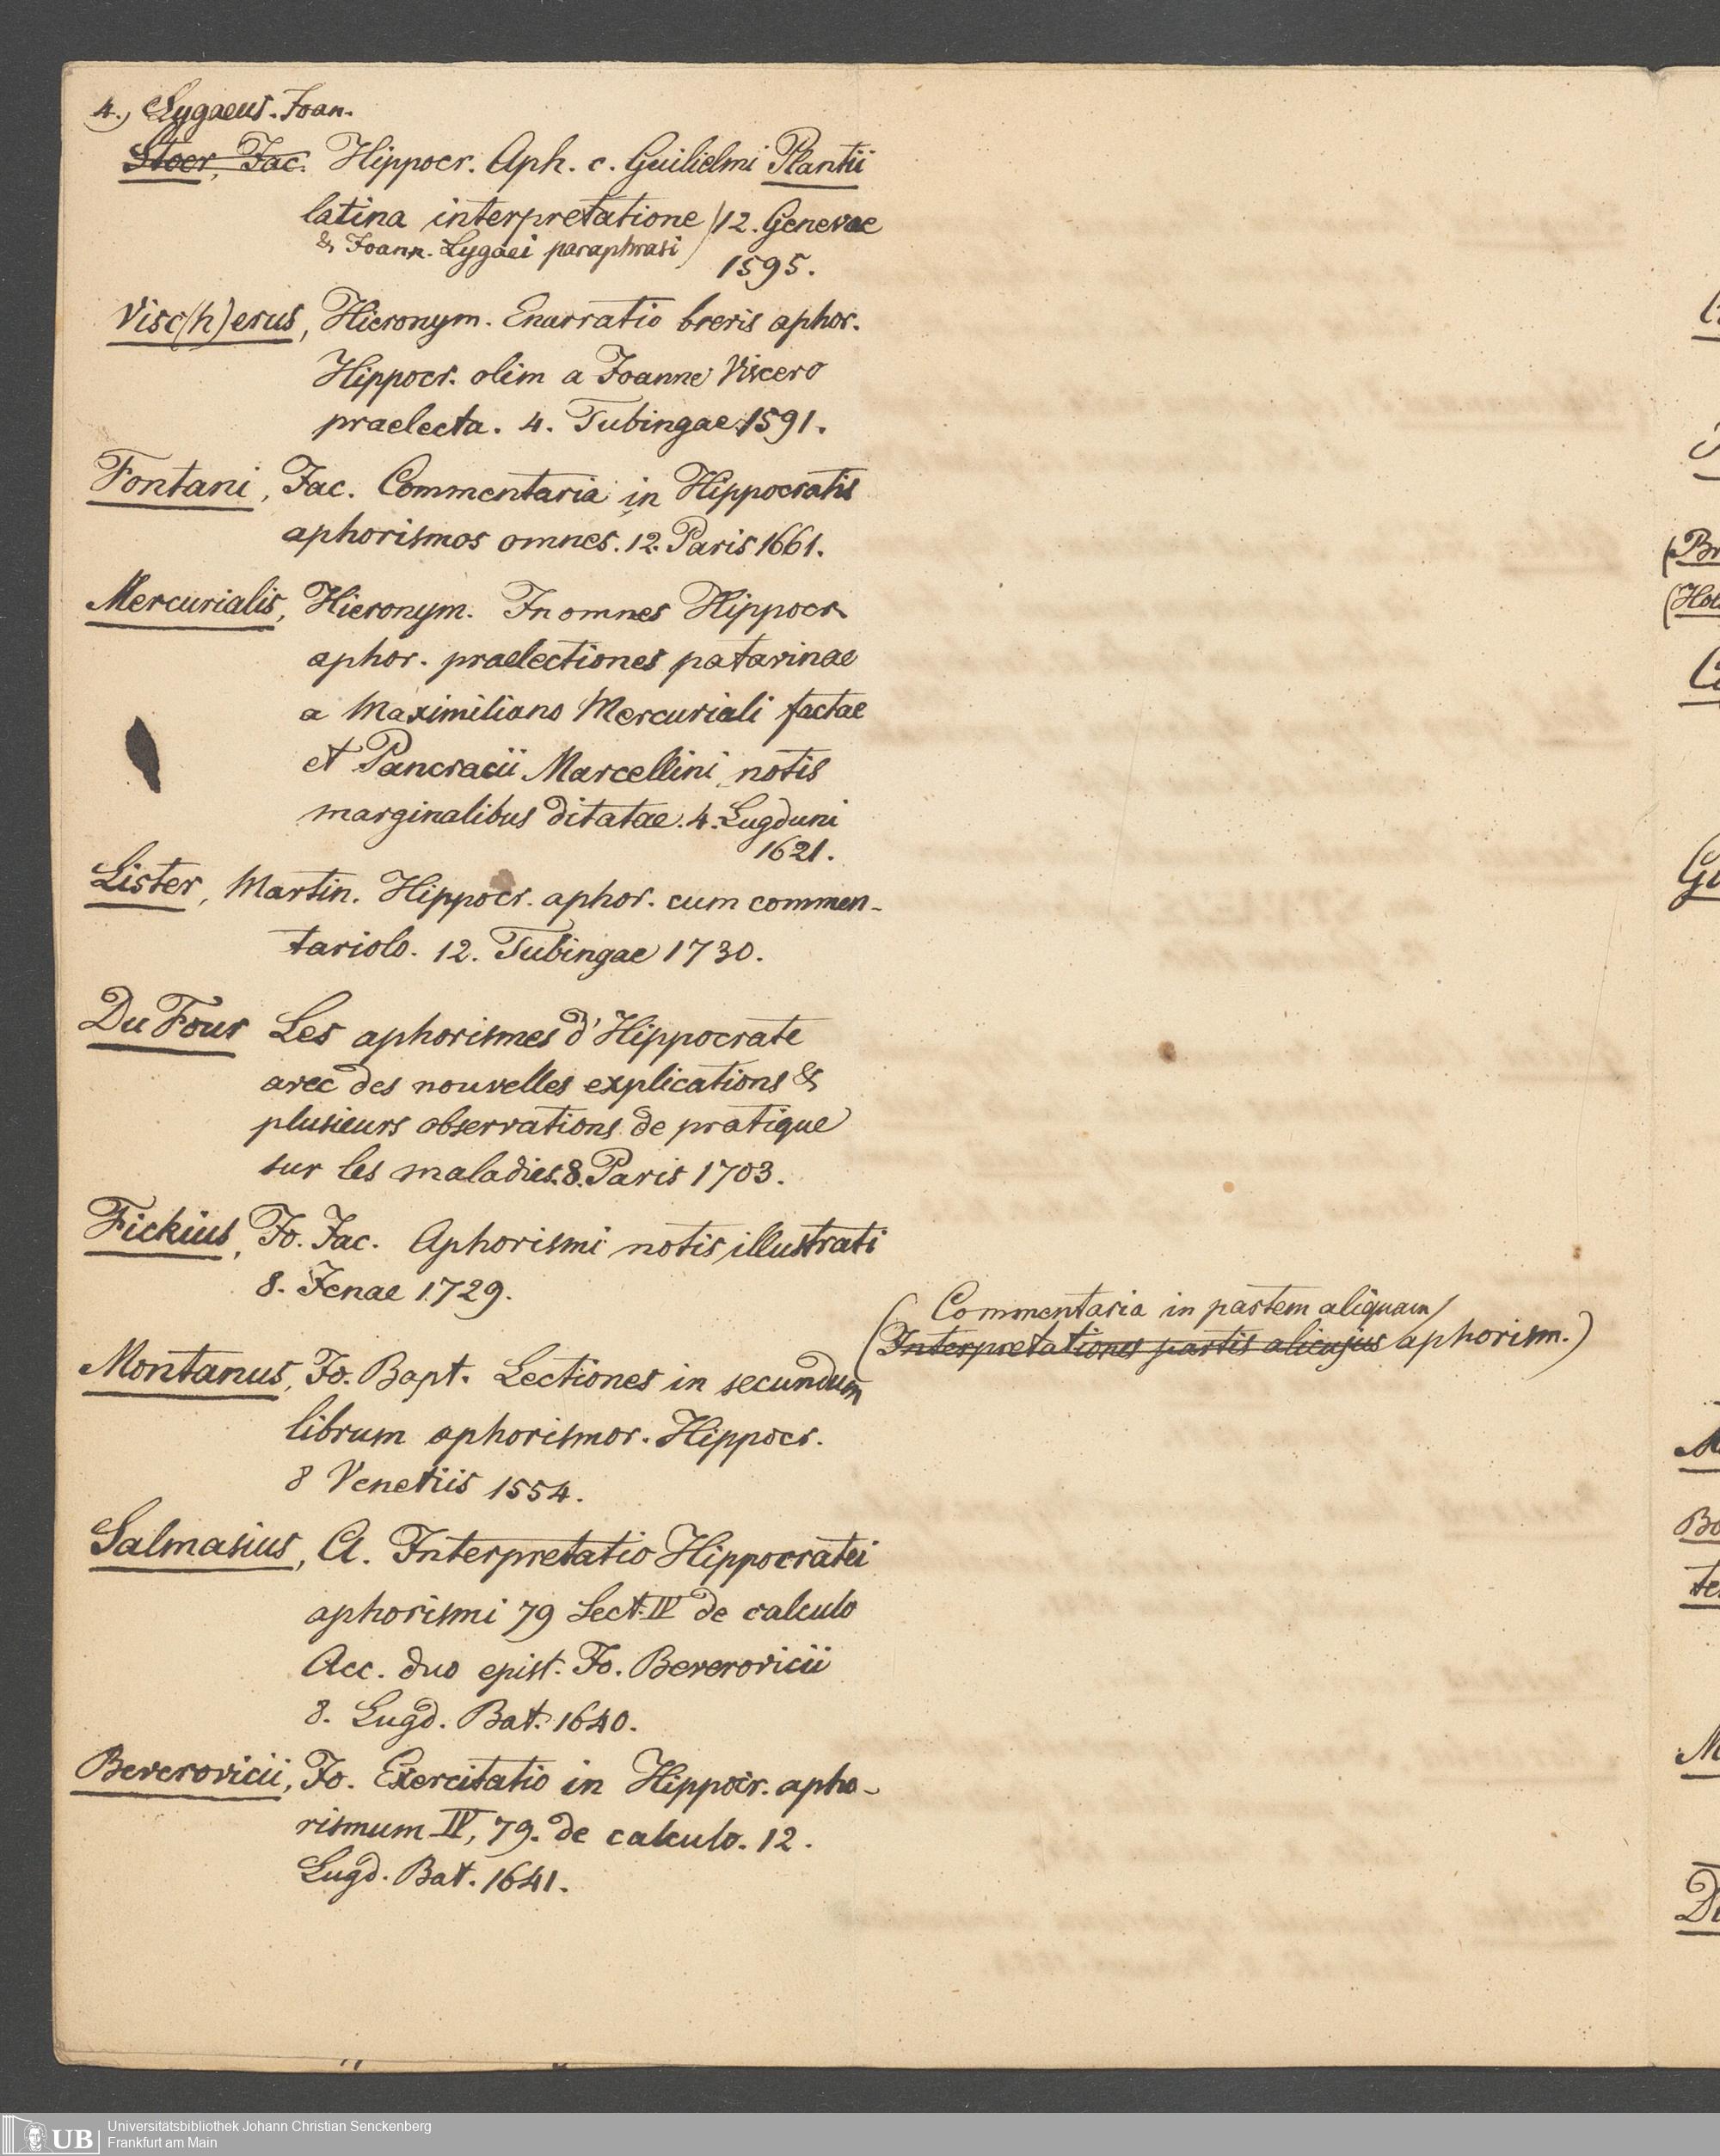 4.) Lygaeus. Joan.
Stoer, Jac. Hippocr. Aph. c. Guilielmi Plantii
latina interpretatione 12. Genevae
& Joann. Lygaei paraphrasi
1595.
Visc(h)erus, Hieronym. Enarratio brevis aphor.
Hippocr. olim a Joanne Viscero
praelecta. 4. Tubingae 1591.
Fontani, Jac. Commentaria in Hippocratis
aphorismos omnes. 12. Paris 1661.
Mercurialis, Hieronym. In omnes Hippocr
aphor. praelectiones patavinae
a Maximiliano Mercuriali factae
et Pancracii Marcellini notis
marginalibus ditatae. 4. Lugduni
1621.
Lister, Martin. Hippocr. aphor. cum commen-
tariolo. 12. Tubingae 1730.
Du Four Les aphorismes d'Hippocrate
avec des nouvelles explications &
plusieurs observations de pratique
sur les maladies. 8. Paris 1703.
Fickius, Jo. Jac. Aphorismi notis illustrati
8. Jenae 1729.
Commentaria in partem aliquam
(Interpretationes partis alicujus aphorism.)
Montanus, Jo. Bapt. Lectiones in secundum
librum aphorismor. Hippocr.
8 Venetiis 1554.
Salmasius, Cl. Interpretatio Hippocratei
aphorismi 79 Sect. IV de calculo
Acc. duo epist. Jo. Beverovicii
8. Lugd. Bat. 1640.
Beverovicii, Jo. Exercitatio in Hippocr. apho-
rismum IV, 79. de calculo. 12.
Lugd. Bat. 1641.
UB
Universitätsbibliothek Johann Christian Senckenberg
Frankfurt am Main